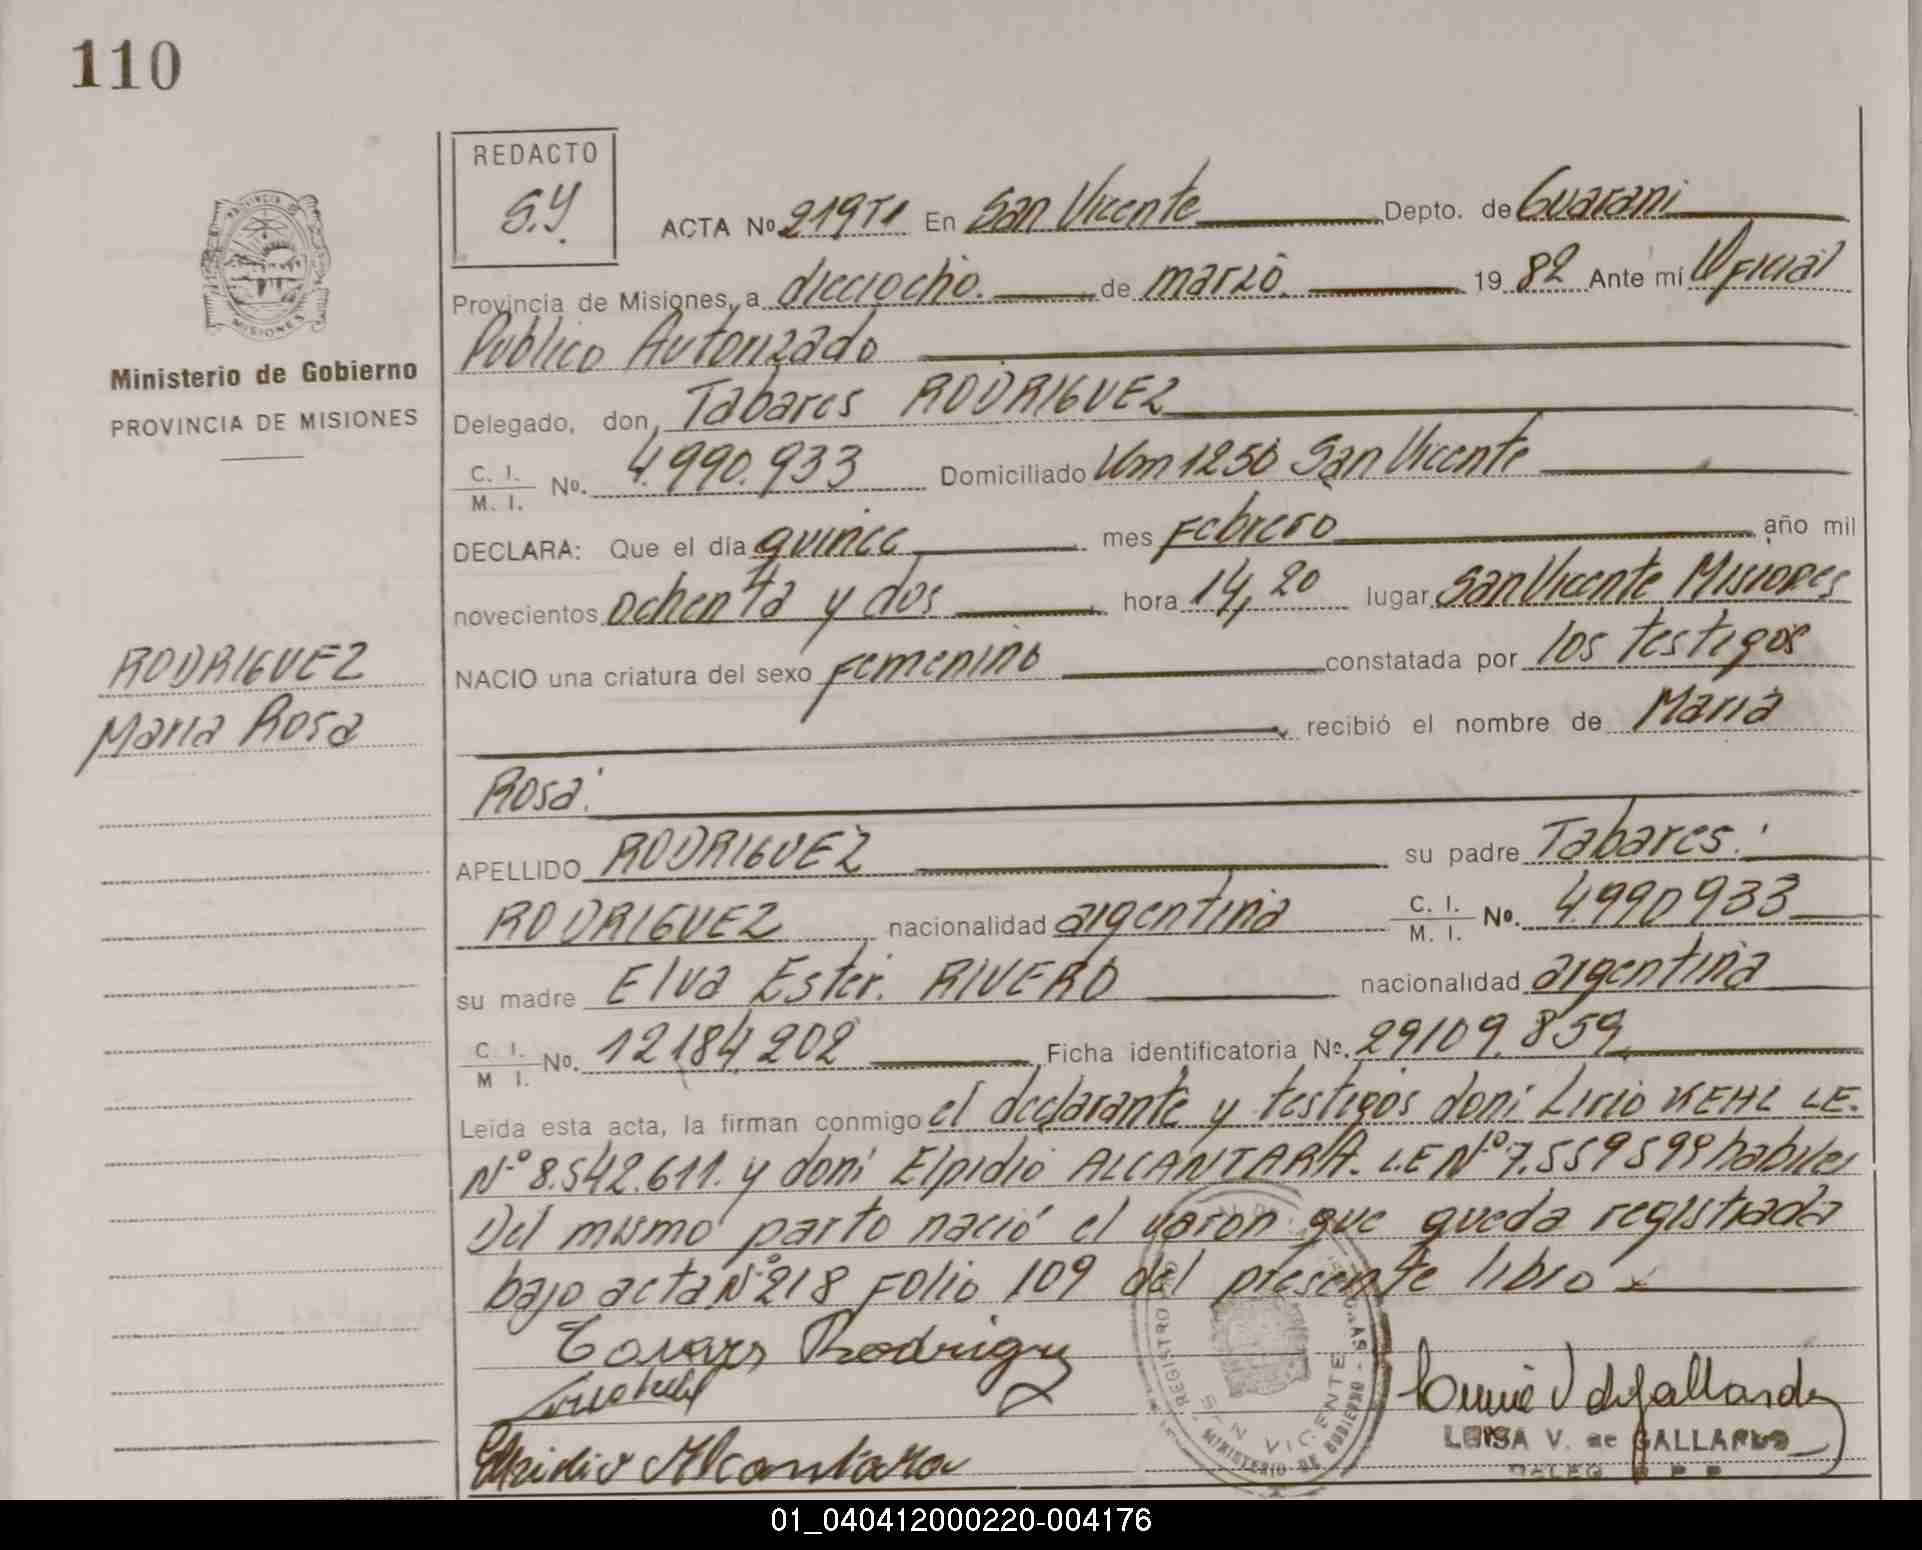 110
REDACTO
S.Y.
ACTA Nº 219 T1 En San Vicente Depto. de Guarani
Provincia de Misiones, a dieciocho. de marzo. 1982 Ante mí Oficial
Publico Autorizado
Ministerio de Gobierno
PROVINCIA DE MISIONES
Delegado, don Tabares RODRIGUEZ
C. I. / M. I. Nº. 4.990.933 Domiciliado Km 1250 San Vicente
DECLARA: Que el día quince mes Febrero año mil
novecientos ochenta y dos hora 14,20 lugar San Vicente Misiones
RODRIGUEZ
Maria Rosa
NACIO una criatura del sexo Femenino constatada por los testigos
recibió el nombre de Maria
Rosa.
APELLIDO RODRIGUEZ su padre Tabares.
RODRIGUEZ nacionalidad argentina C. I. / M. I. Nº. 4.990933
su madre Elva Ester. RIVERO nacionalidad argentina
C. I. / M I. Nº. 12184,202 Ficha identificatoria Nº. 29109.859
Leida esta acta, la firman conmigo el declarante y testigos doni Lirio KEHL LE.
Nº 8.542.611. y doni Elpidio ALCANTARA. L.E Nº 7.559599 habiles
Del mismo parto nació el varon que queda registrada
bajo acta Nº 218 Folio 109 del presente libro
Tavares Rodriguez
Elpidio Alcantara
REGISTRO
SAN VICENTE
MINISTERIO DE GOBIERNO
LUISA V. de GALLARDO
01_040412000220-004176